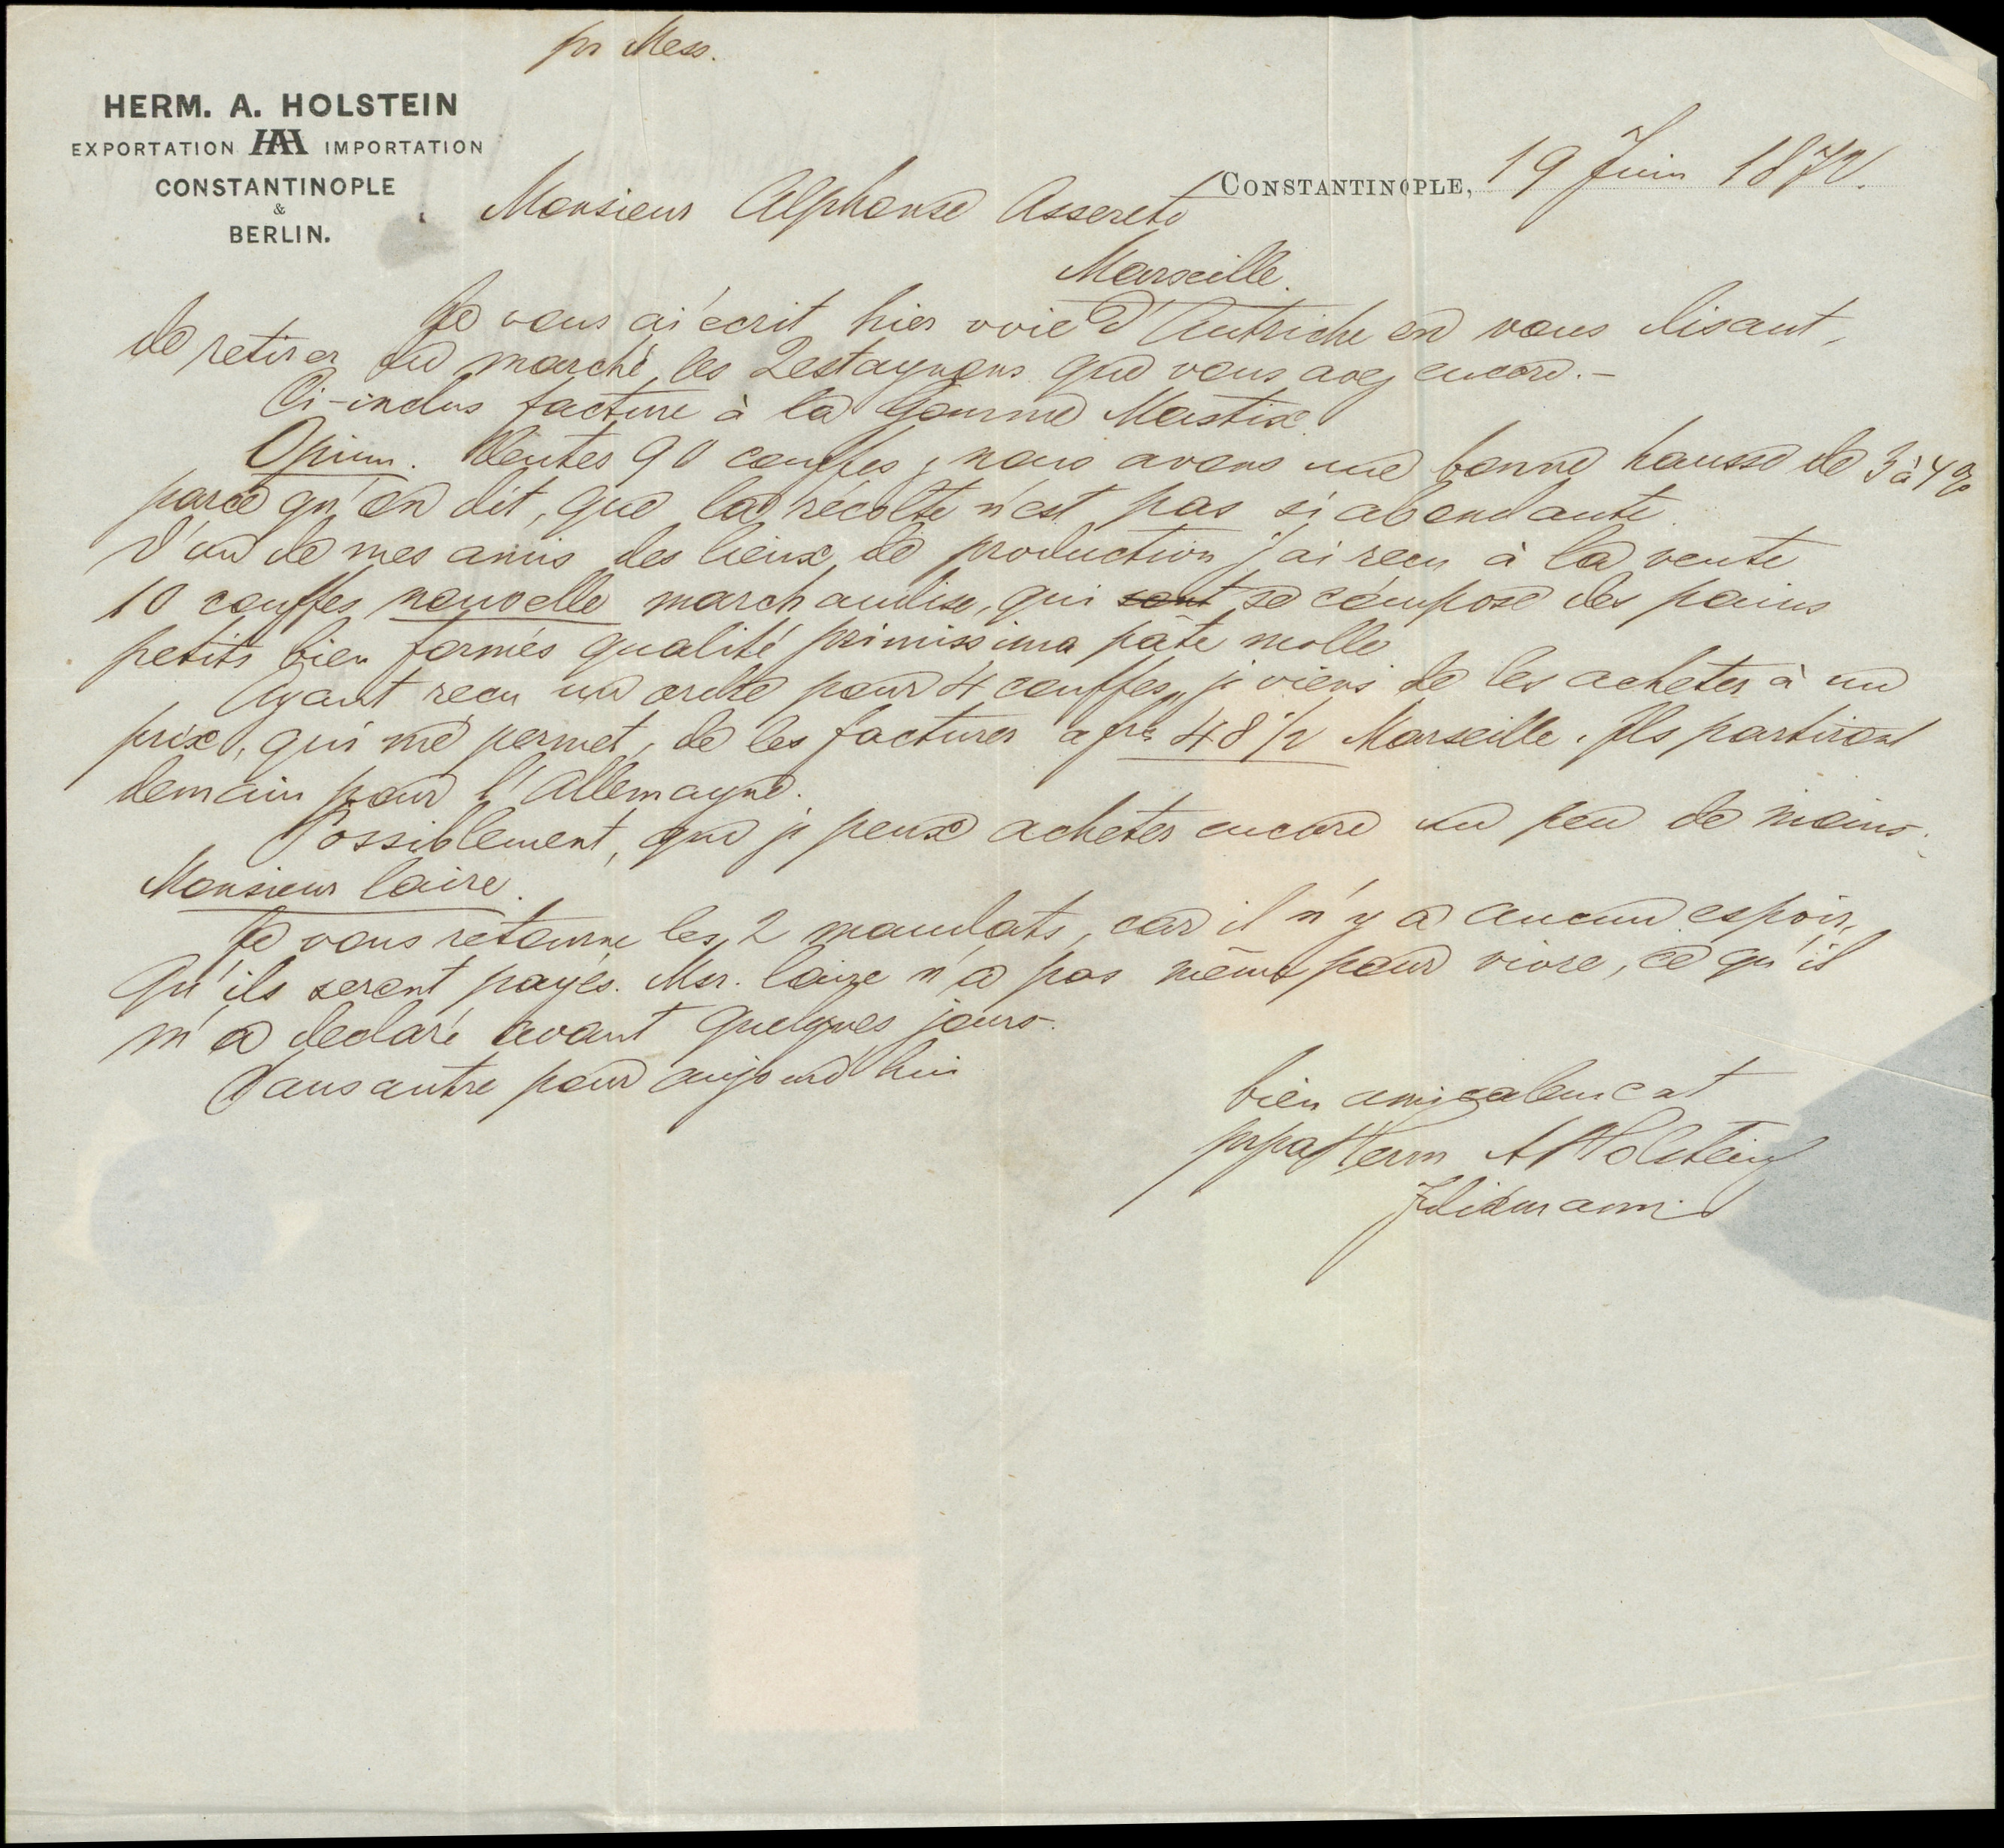 pr Mess.
HERM. A. HOLSTEIN
EXPORTATION HAH IMPORTATION
CONSTANTINOPLE
&
BERLIN.
CONSTANTINOPLE, 19 Juin 1872.
Monsieur Alphonse Assereto
Marseille.
Je vous ai écrit hier voie d'Autriche en vous disant,
de retirer du marché les 2 estagnons que vous avez encore.-
Ci-inclus facture à la Gomme Mastix.
Opium. Ventes 90 couffes, nous avons une bonne hausse de 3 à 4 %
parce qu'on dit, que la récolte n'est pas si abondante.
D'un de mes amis des lieux de production j'ai reçu à la vente
10 couffes nouvelle marchandise, qui sont se compose des pains
petits bien formés qualité primissima pâte molle.
Ayant reçu un ordre pour 4 couffes, je viens de les acheter à un
prix, qui me permet, de les facturer a frs 48 1/2 Marseille. Ils partiront
demain pour l'Allemagne.
Possiblement, que je peux acheter encore un peu de moins.
Monsieur Laire.
Je vous retourne les 2 mandats, car il n'y a aucun espoir,
qu'ils seront payés. Msr. Laire n'a pas même pour vivre, ce qu'il
m'a declaré avant quelques jours.
Sans autre pour aujourd'hui
bien amicalement
prpa Herm A Holstein